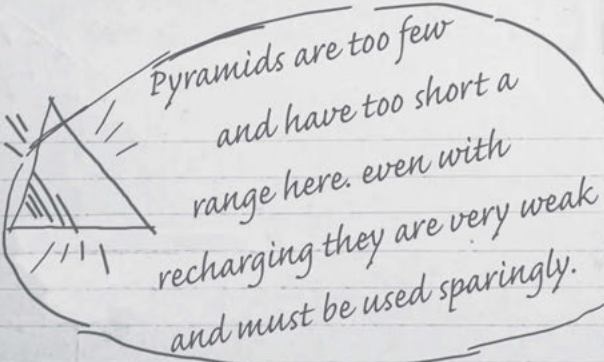 Pyramids are too few
and have too short a
range here. even with
recharging they are very weak
and must be used sparingly.